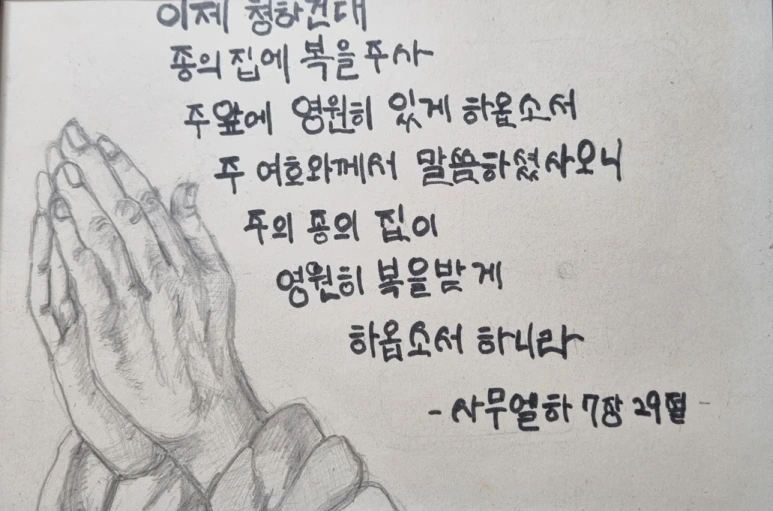 이제 청하건대
종의 집에 복을 주사
주 앞에 영원히 있게 하옵소서
주 여호와께서 말씀하셨사오니
주의 종의 집이
영원히 복을 받게
하옵소서 하니라
- 사무엘하 7장 29절 -